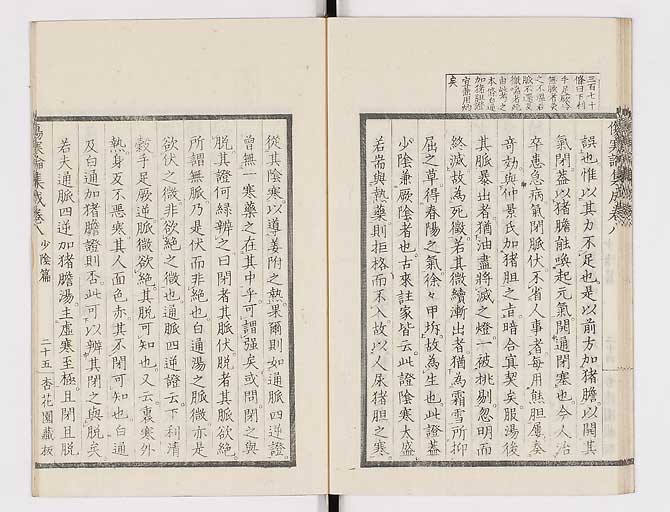 三百七十
條曰下利
手足厥冷
無脈者灸
之不溫若
脈不還反
微喘者死
由此考之
本條白通
加猪膽證
宜兼用灼
矣
誤也惟以其力不足也是以前方加猪膽以開其
氣閉蓋以猪膽能喚起元氣開通閉塞也今人治
卒患急病氣閉脈伏不省人事者每用熊膽屢奏
奇効與仲景氏加猪胆之旨暗合冥契矣服湯後
其脈暴出者猶油盡將滅之燈一被挑剔忽明而
終滅故為死徵若其微續漸出者猶為霜雪所抑
屈之草得春陽之氣徐々甲坼故為生也此證蓋
少陰兼厥陰者也古來註家皆云此證陰寒太盛
若耑與熱藥則拒格而不入故以人尿猪胆之寒
從其陰寒以導姜附之熱果爾則如通脈四逆證
曾無一寒藥之在其中乎可謂强矣或問閉之與
脫其證何緣辨之曰閉者其脈伏脫者其脈欲絕
所謂無脈乃是伏而非絕也白通湯之脈微亦是
欲伏之微非欲絕之微也通脈四逆證云下利清
穀手足厥逆脈微欲絕其脫可知也又云裏寒外
熱身反不惡寒其人面色赤其不閉可知也白通
及白通加猪膽證則否此可以辨其閉之與脫矣
若夫通脈四逆加猪膽湯主虛寒至極且閉且脫
傷寒論集成卷八 少陰篇 二十五 杏花園藏板